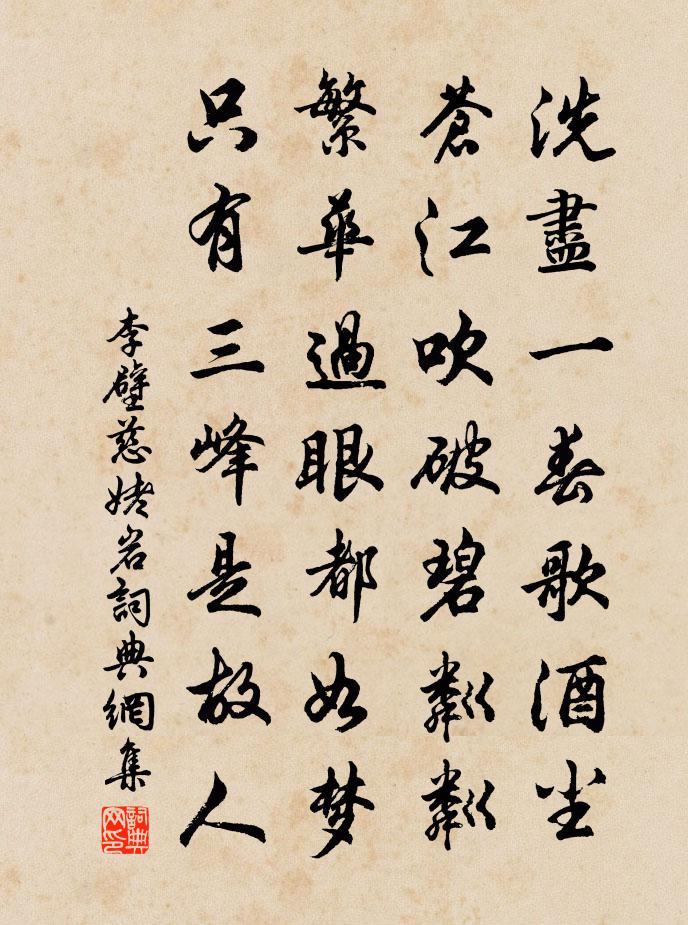 洗盡一春歌酒尘
蒼江吹破碧粼粼
繁華過眼都如梦
只有三峰是故人
李壁慈姥岩詞典網集
詞典网印